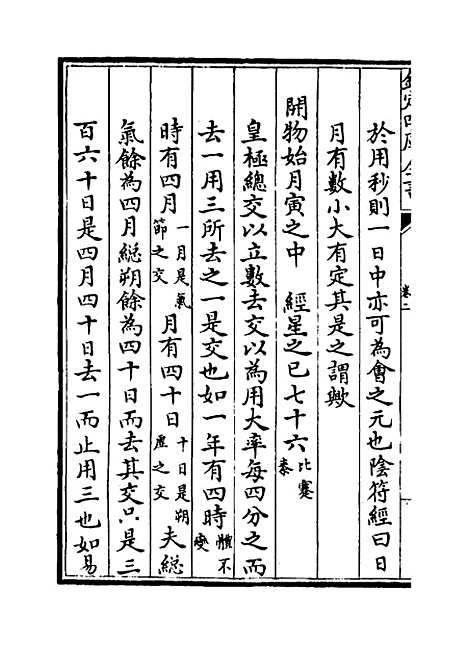 欽定四庫全書
卷二
於用秒則一日中亦可為會之元也陰符經曰日
月有數小大有定其是之謂歟
開物始月寅之中　經星之已七十六比蹇泰
皇極總交以立數去交以為用大率每四分之而
去一用三所去之一是交也如一年有四時體不變
時有四月一月是氣節之交月有四十日十日是朔虛之交夫總
氣餘為四月總朔餘為四十日而去其交只是三
百六十日是四月四十日去一而止用三也如易